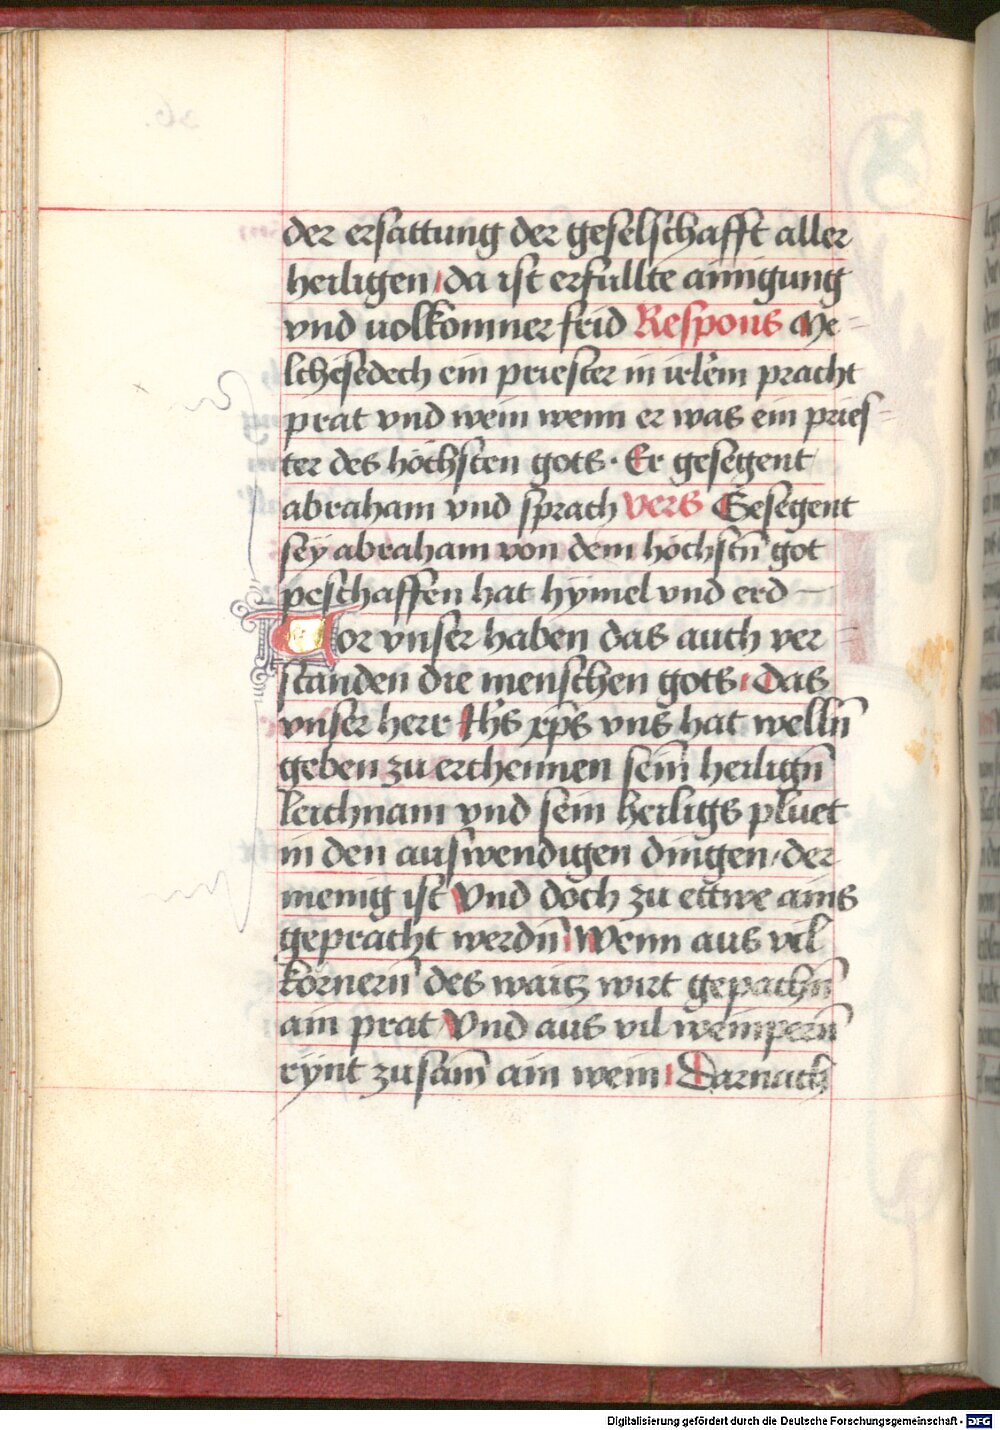 der ersattung der geselschafft aller
heiligen / da ist erfullte ainigung
vnd uolkomner frid Respons Me-
lchesedech ein priester in ierl̄em pracht
prat vnd wein wenn er was ein pries-
ter des höchsten gots · Er gesegent
abraham vnd sprach vers Gesegent
seÿ abraham von dem höchstn̄ got
peschaffen hat hÿmel vnd erd —
Vor vnser haben das auch ver-
standen die menschen gots / Das
vnser herr Ih̄s xp̄s vns hat welln̄
geben zu erchennen sein̄ heilign̄
leichnam vnd sein heiligs pluet
in den auswendigen dingen / der
menig ist Vnd doch zu ettwe ains
gepracht werdn̄ / Wenn aus vil
körnern̄ des waitz wirt gepachn̄
ain prat Vnd aus vil weinpern̄
rÿnt zusam̄ ain wein / Darnach
Digitalisierung gefördert durch die Deutsche Forschungsgemeinschaft - DFG